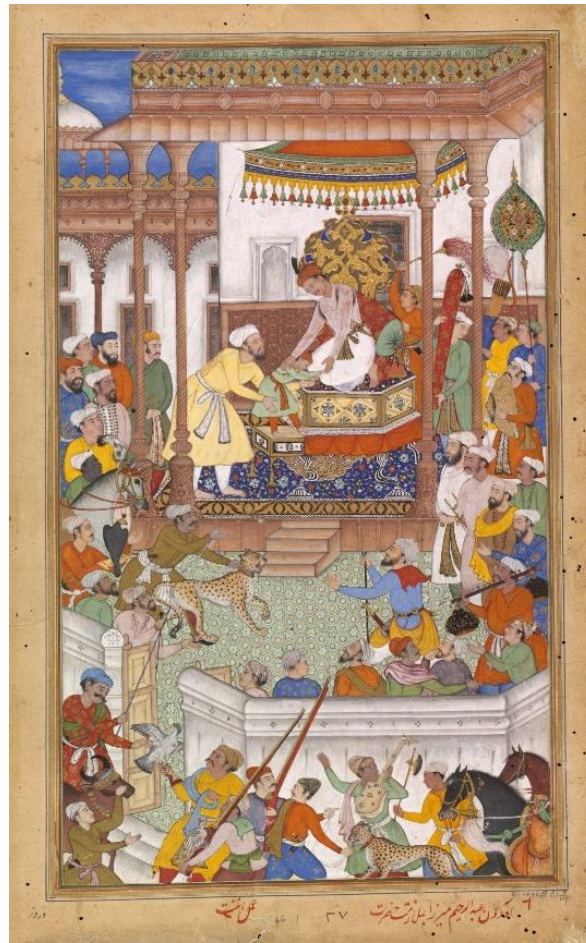 آوردن عبدالرحیم میرزا بملازمت حضرت ۳۷ عمل اننت